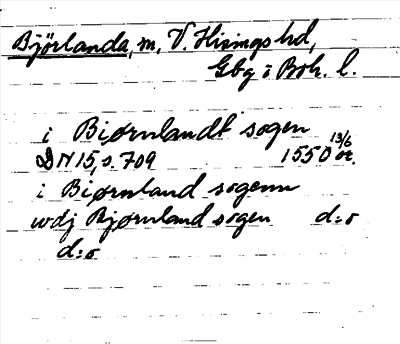 Björlanda, m, V. Hisings hd,
Gbg o Boh. l.
i Biørnlandt sogen
DN 15, s. 709 1550 13/6 or.
i Biørnland sogenn
wdj Bjørnland sogen d:o
d:o